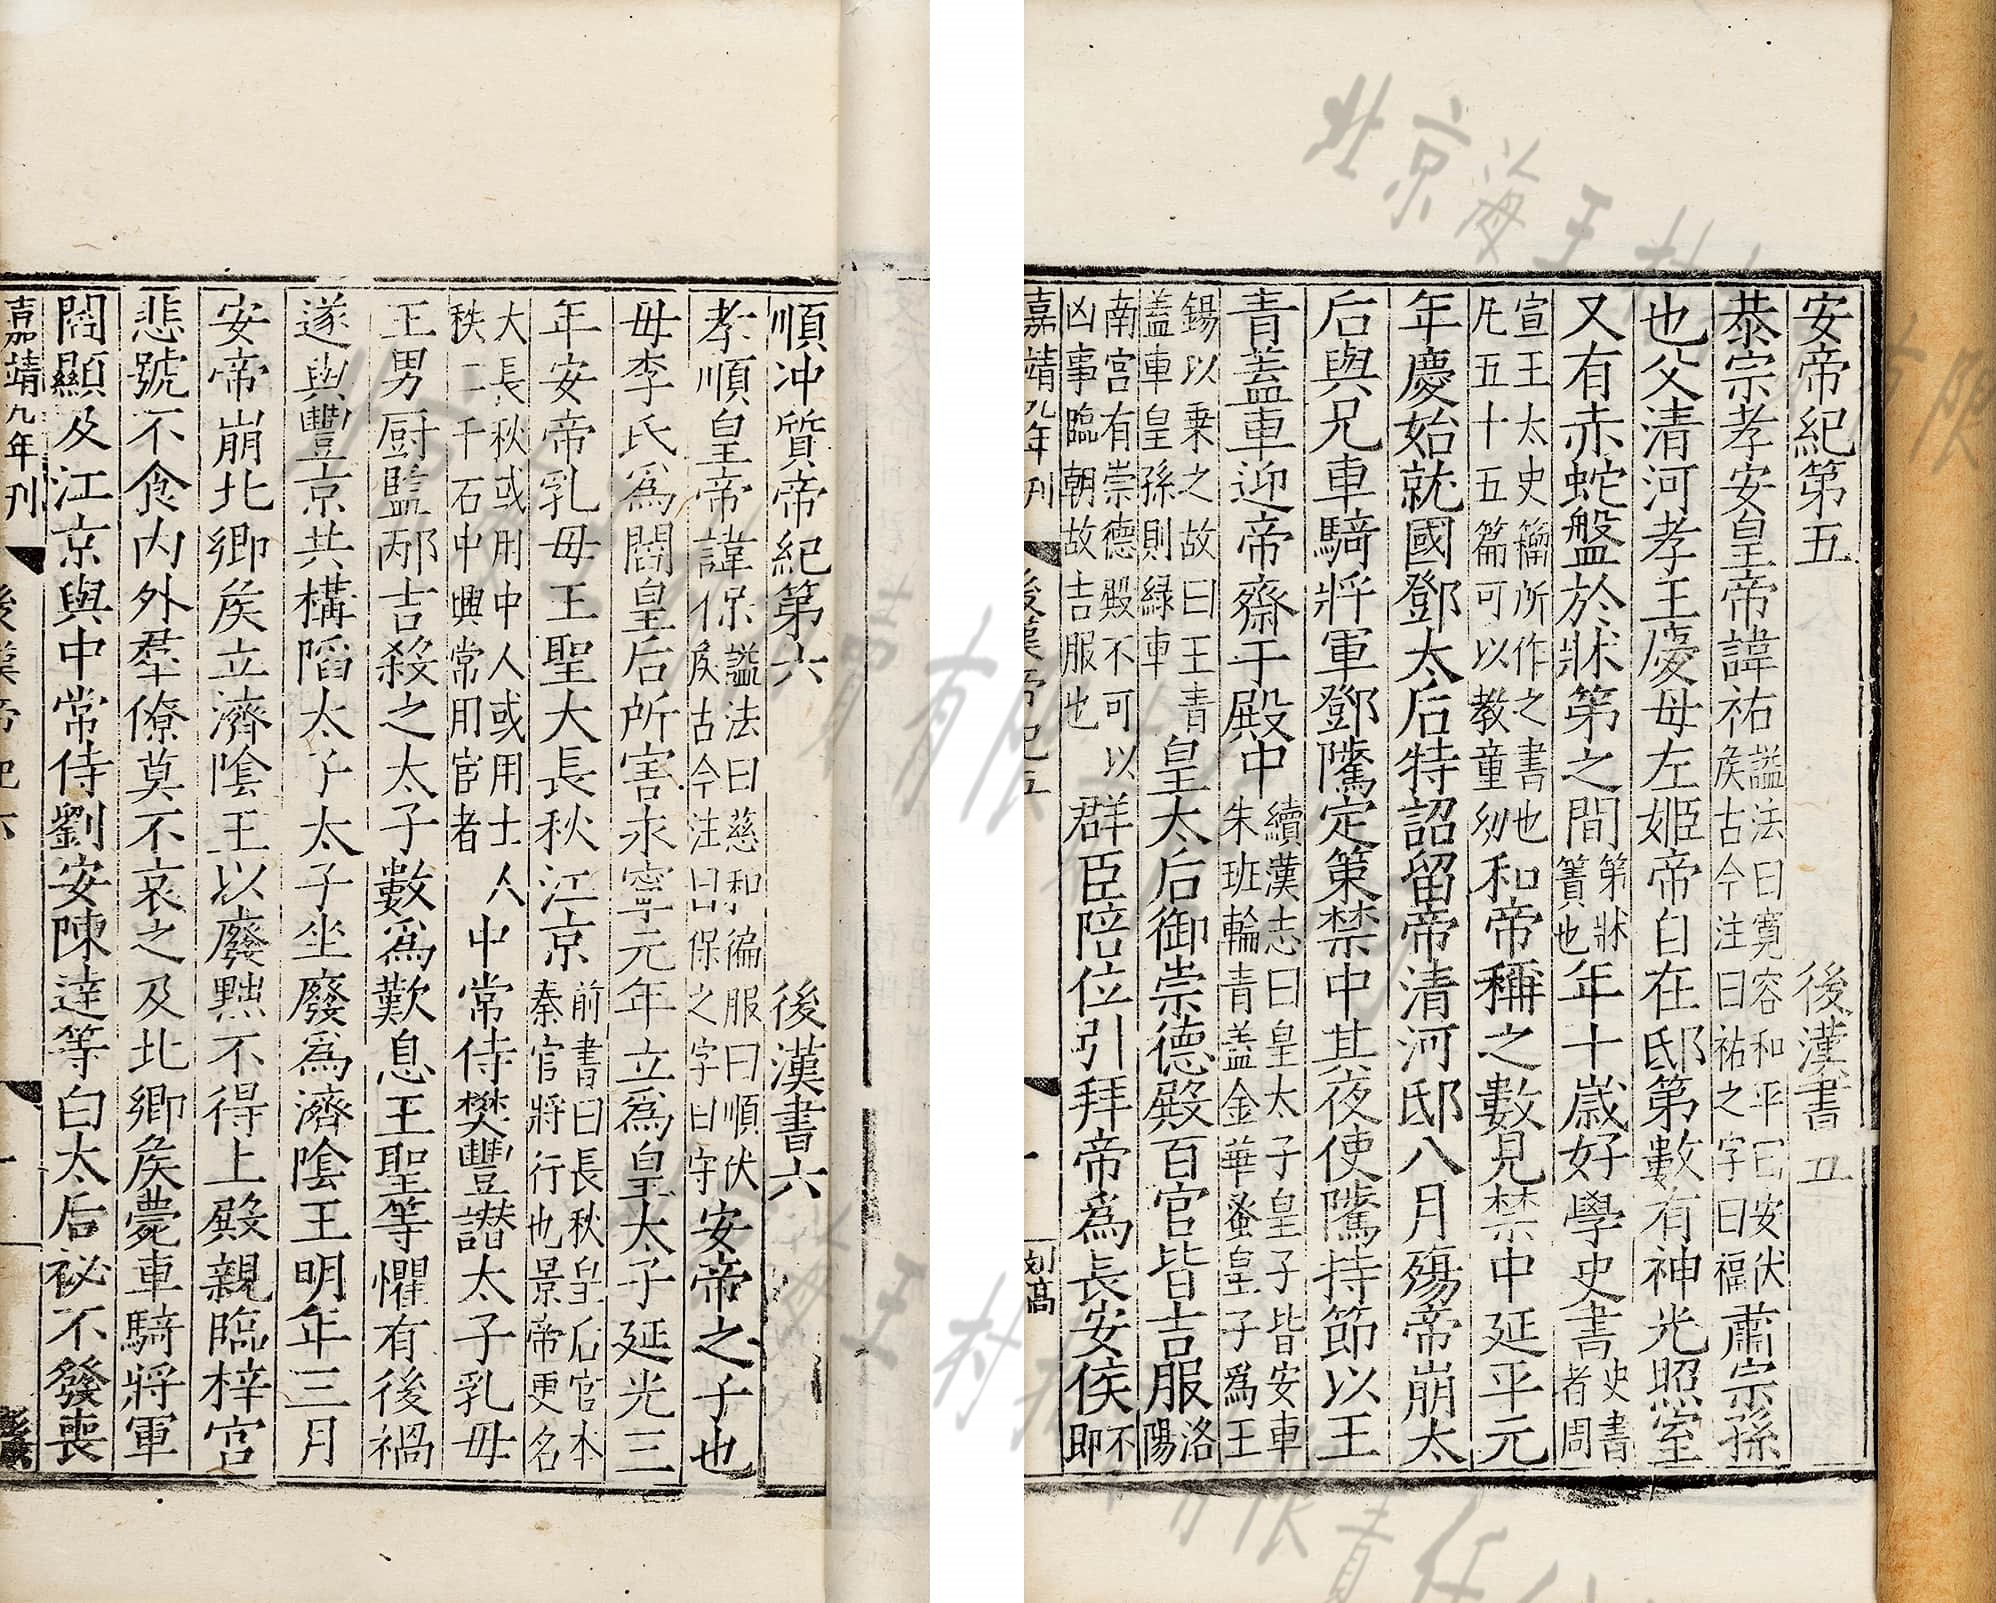 安帝紀第五 後漢書五
恭宗孝安皇帝諱祐謚法曰寛容和平曰安伏侯古今注曰祐之字曰福肅宗孫
也父清河孝王慶母左姬帝自在邸第數有神光照室
又有赤蛇盤於牀第之間第牀簀也年十歳好學史書史書者周
宣王太史籒所作之書也凡五十五篇可以教童幼和帝稱之數見禁中延平元
年慶始就國鄧太后特詔留帝清河邸八月殤帝崩太
后與兄車騎將軍鄧騭定策禁中其夜使騭持節以王
青蓋車迎帝齋于殿中續漢志曰皇太子皇子皆安車朱班輪青蓋金華蚤皇子爲王
錫以乗之故曰王青蓋車皇孫則緑車皇太后御崇德殿百官皆吉服洛陽
南宫有崇德殿不可以凶事臨朝故吉服也群臣陪位引拜帝爲長安侯不即
嘉靖九年刊 後漢帝紀五 一
順冲質帝紀第六 後漢書六
孝順皇帝諱保謚法曰慈和徧服曰順伏侯古今注曰保之字曰守安帝之子也
母李氏爲閻皇后所害永寧元年立爲皇太子延光三
年安帝乳母王聖大長秋江京前書曰長秋皇后官本秦官將行也景帝更名
大長秋或用中人或用士人秩二千石中興常用宦者中常侍樊豐譖太子乳母
王男厨監邴吉殺之太子數爲歎息王聖等懼有後禍
遂與豐京共構陷太子太子坐廢爲濟陰王明年三月
安帝崩北鄉侯立濟陰王以廢黜不得上殿親臨梓宫
悲號不食内外羣僚莫不哀之及北鄉侯薨車騎將軍
閻顯及江京與中常侍劉安陳達等白太后祕不發喪
嘉靖九年刊 後漢帝紀六 一
北京海王村拍賣有限責任公司